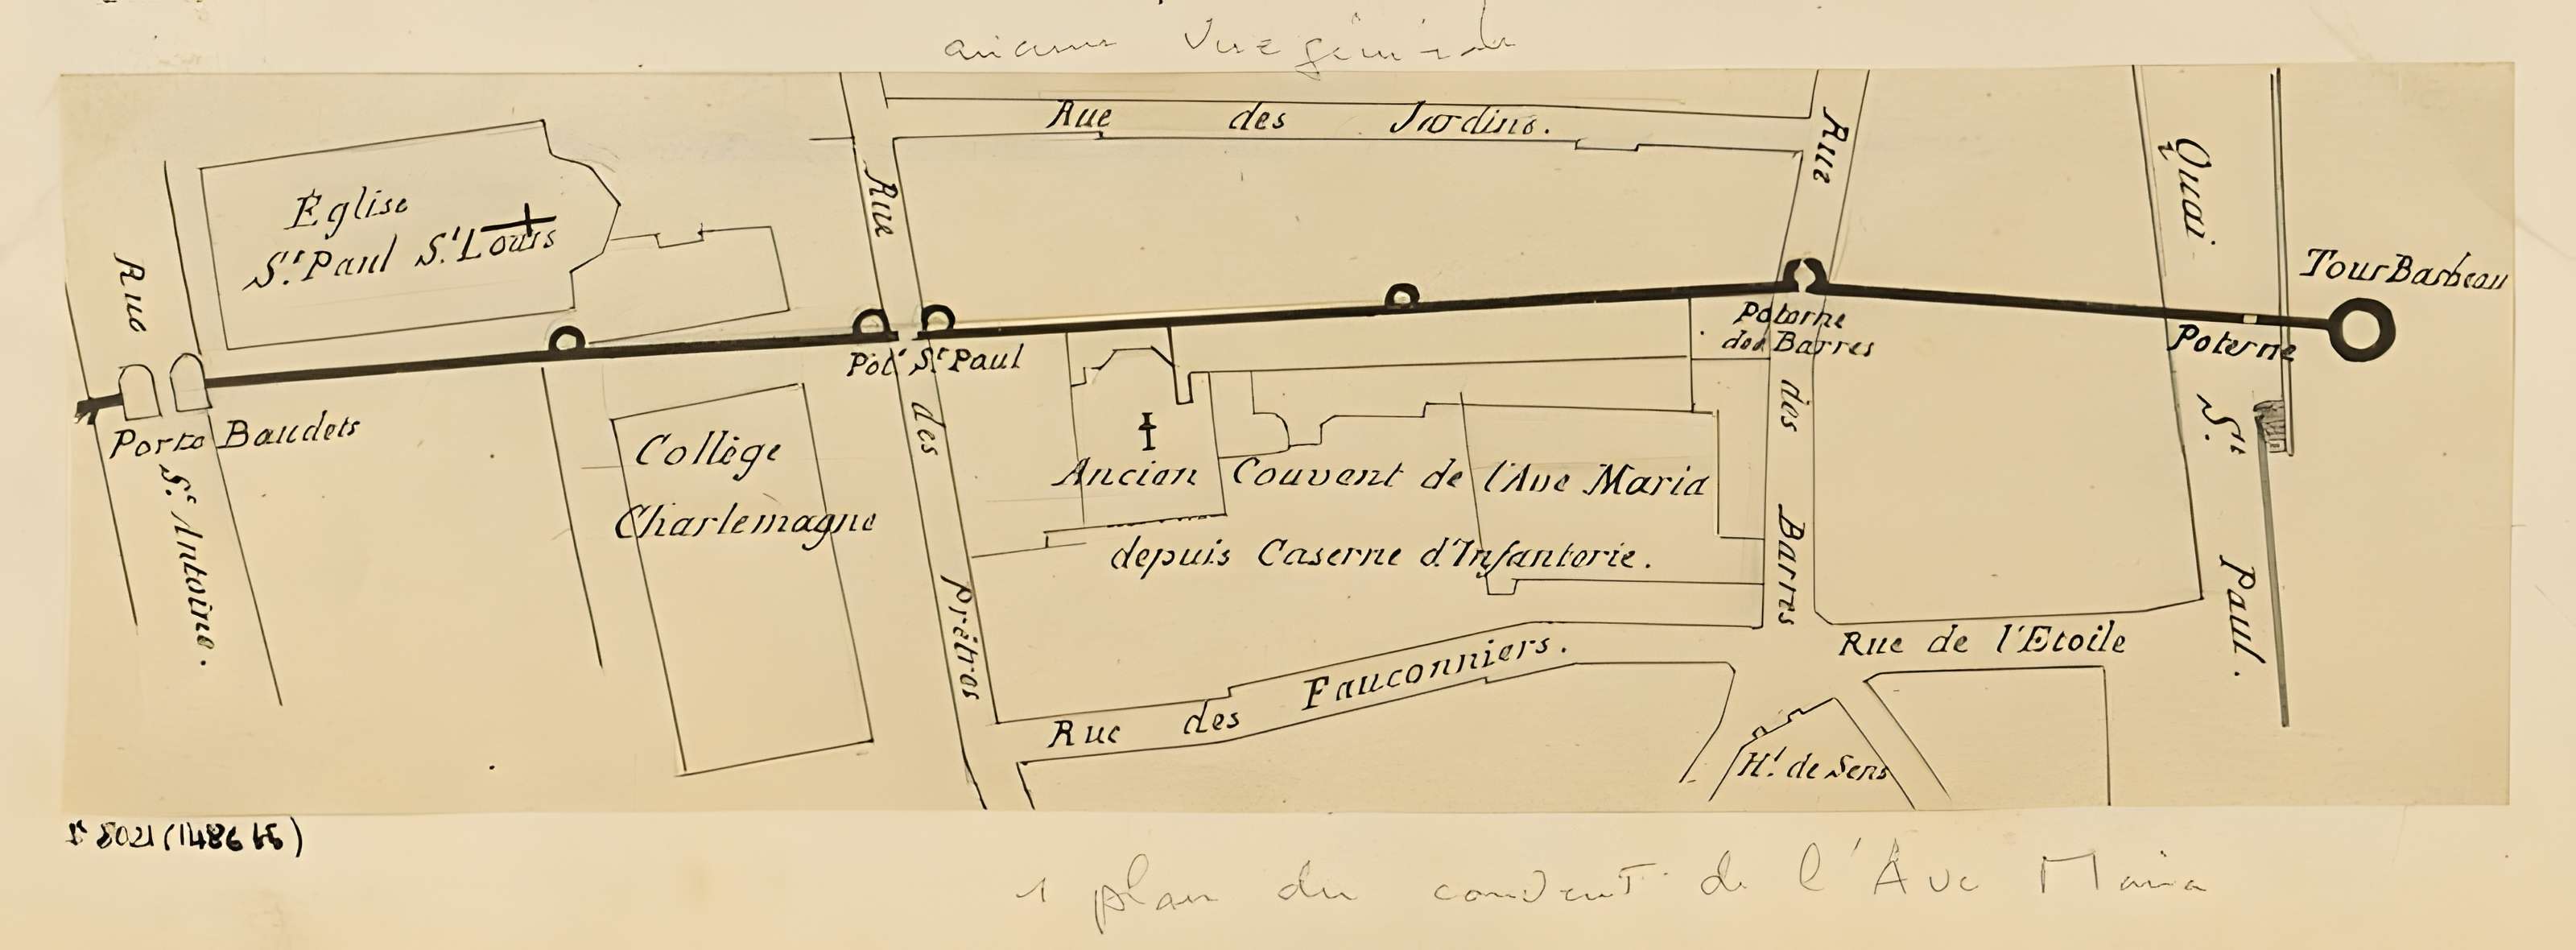 Rue des Jardins.
Eglise
St. Paul St. Louis
Rue St. Antoine.
Porte Baudets
Collège
Charlemagne
Rue des Prêtres
Pot. St. Paul
Ancien Couvent de l'Ave Maria
depuis Caserne d'Infanterie.
Rue des Barres
Poterne
des Barres
Rue des Fauconniers.
Rue de l'Etoile
Ht. de Sens
Quai St. Paul.
Poterne
Tour Barbeau
1 plan du couvent de l'Ave Maria